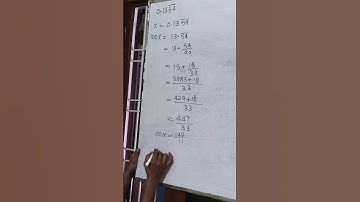 0.13\overline{54}
x = 0.13\overline{54}
100x = 13.\overline{54}
= 13 + \frac{54}{99}
= 13 + \frac{18}{33}
= \frac{33×13+18}{33}
= \frac{429+18}{33}
= \frac{447}{33}
100x = \frac{149}{11}